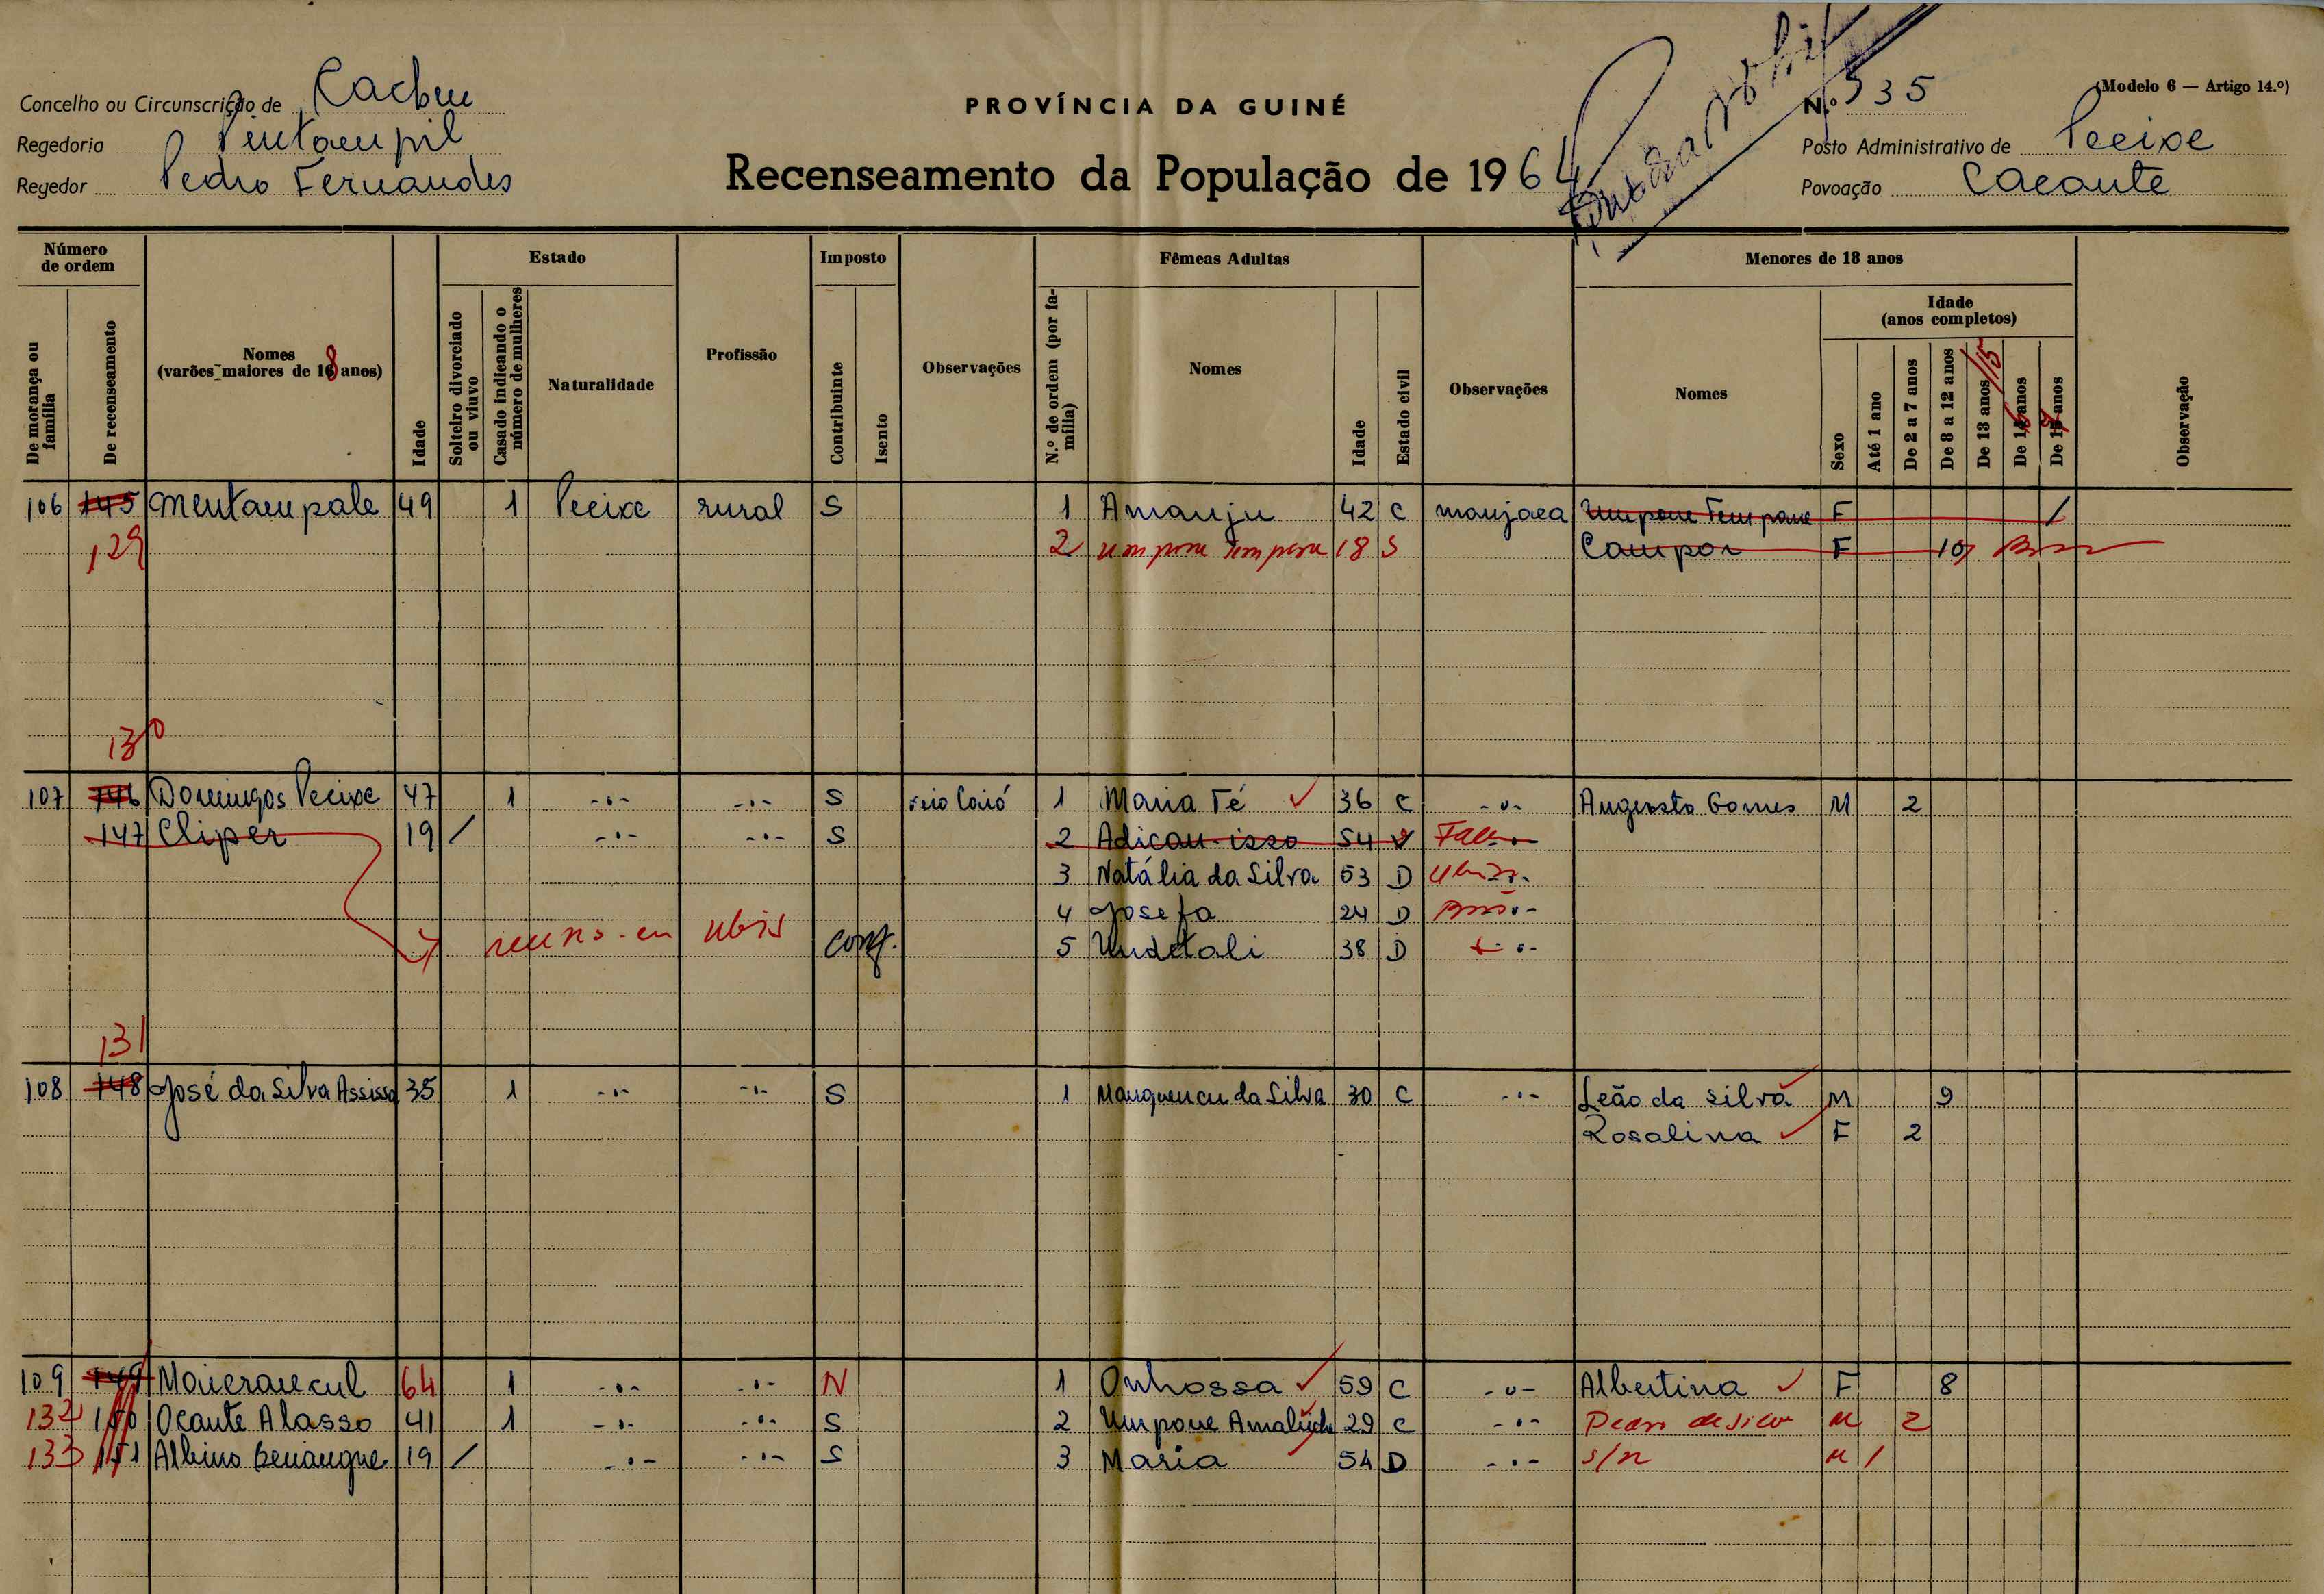 Concelho ou Circunscrição de Cacheu
PROVÍNCIA DA GUINÉ
N.º 335
(Modelo 6 — Artigo 14.º)
Regedoria Pintampil
Posto Administrativo de Pecixe
Regedor Pedro Fernandes
Recenseamento da População de 1964
Povoação Cacante
Número de ordem
Estado
Imposto
Fêmeas Adultas
Menores de 18 anos
Idade (anos completos)
De morança ou família
De recenseamento
Nomes (varões maiores de 18 anos)
Idade
Solteiro divorciado ou viuvo
Casado indicando o número de mulheres
Naturalidade
Profissão
Contribuinte
Isento
Observações
N.º de ordem (por família)
Nomes
Idade
Estado civil
Observações
Nomes
Sexo
Até 1 ano
De 2 a 7 anos
De 8 a 12 anos
De 13 anos /15
De 16 anos
De 17 anos
Observação
106 145 Mentampale 49 1 Pecixe rural S 1 Amanju 42 C manjaca Umpone Tempone F /
129 2 Umpone Tempone 18 S Campon F 10
130
107 146 Domingos Pecixe 47 1 -"- -"- S veio Caió 1 Maria Té 36 C -"- Augusto Gomes M 2
147 Cliper 19 / -"- -"- S 2 Adicau-isso 54 V
3 Natália da Silva 53 D
4 Josefa 24 D
5 Undetali 38 D
131
108 148 José da Silva Assisso 35 1 -"- -"- S 1 da Silva 30 C -"- Leão da Silva M 9
Rosalina F 2
109 149 64 1 -"- -"- N 1 Onhossa 59 C -"- Albertina F 8
132 150 Ocante Alasso 41 1 -"- -"- S 2 Umpone 29 C -"- M 2
133 151 Albino 19 / -"- -"- S 3 Maria 54 D -"- s/n M /